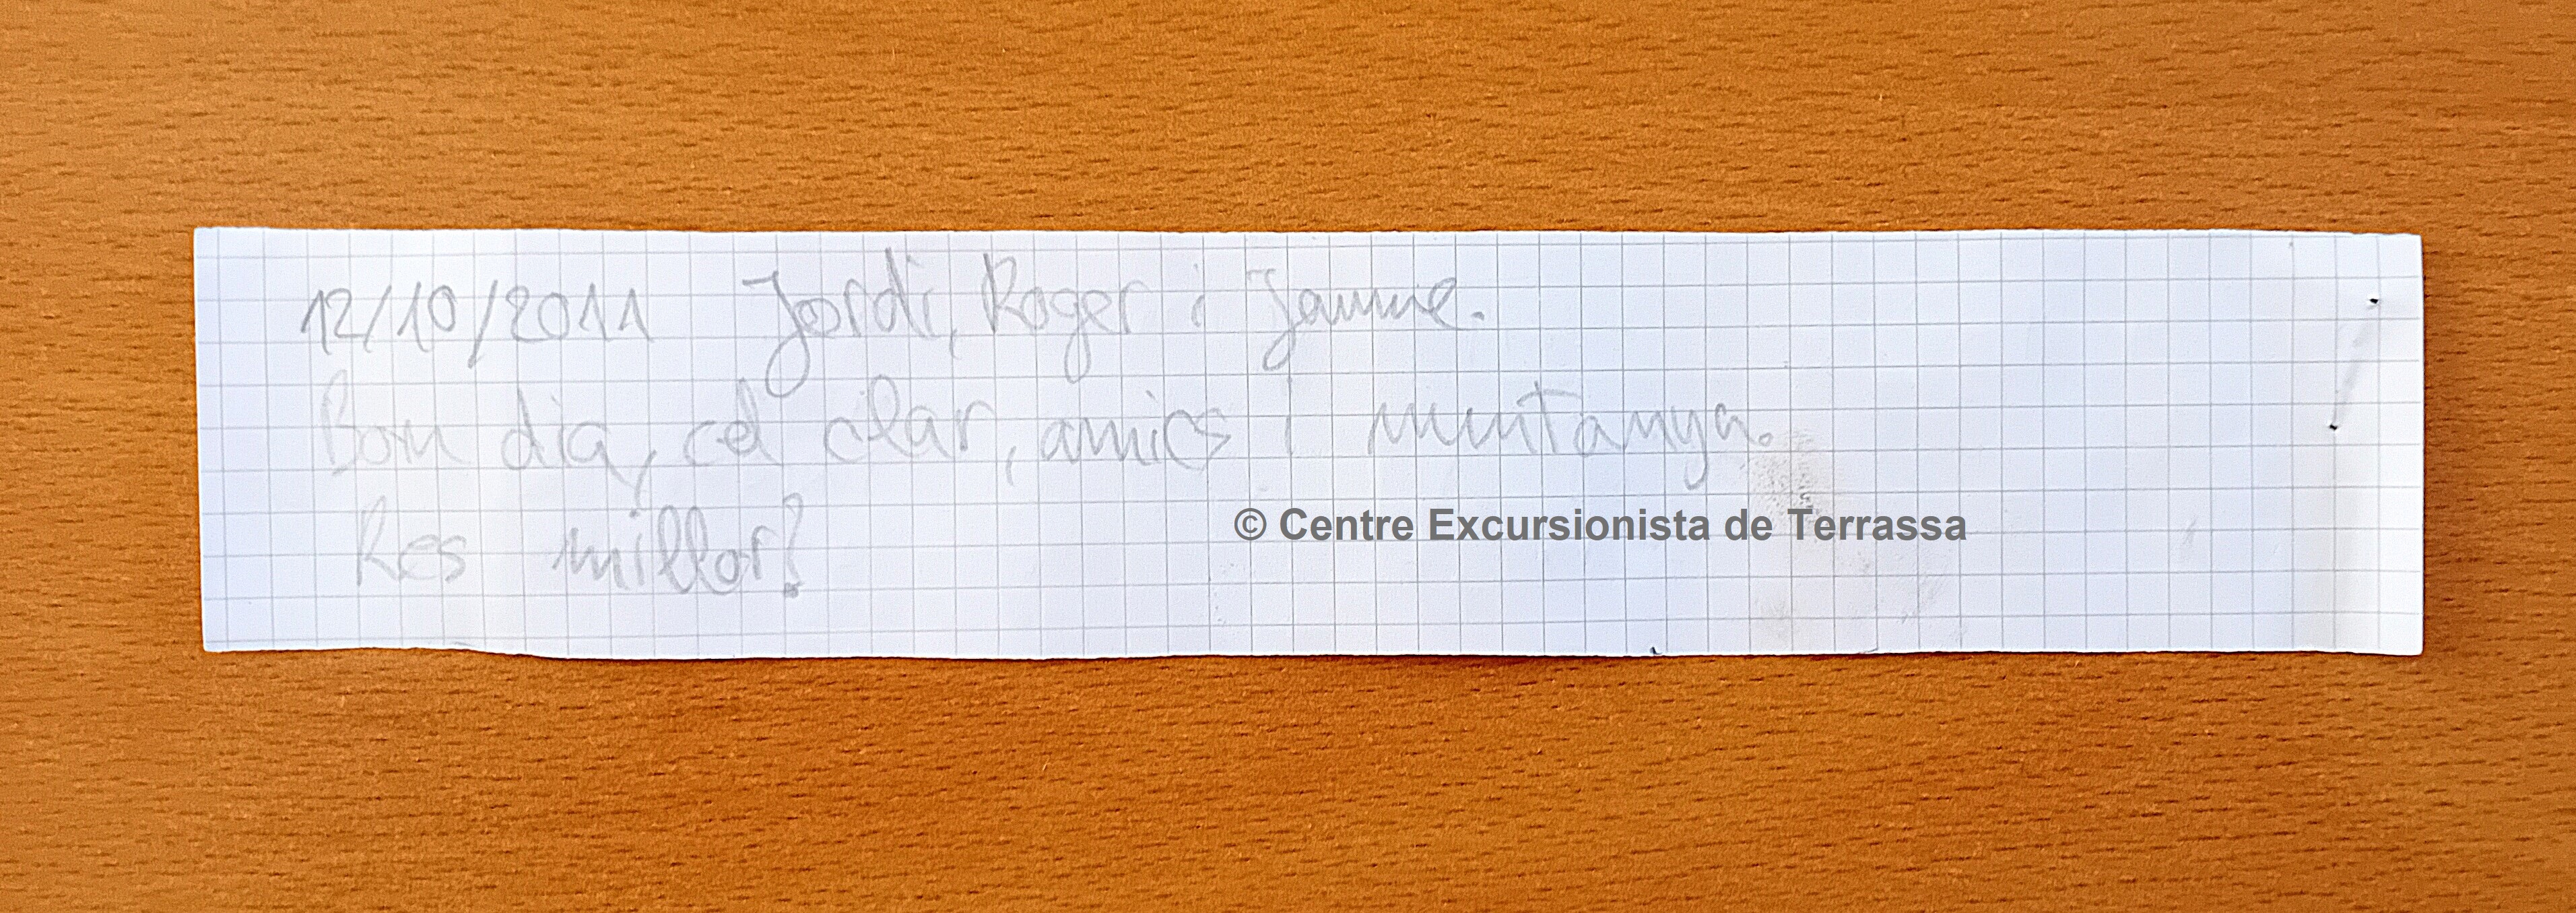 12/10/2011 Jordi, Roger i Jaume.
Bon dia, cel clar, amics i muntanya.
Res millor?
© Centre Excursionista de Terrassa